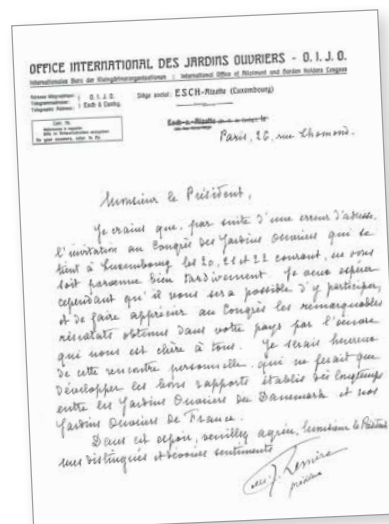 OFFICE INTERNATIONAL DES JARDINS OUVRIERS - O. I. J. O.
Internationales Büro der Kleingärtnerorganisationen : International Office of Allotment and Garden Holders Congress
O. I. J. O.
Esch s. Alzette
Siège social: ESCH-Alzette (Luxembourg)
Paris, 26, rue Lhomond.
Monsieur le Président,
Je crains que par suite d'une erreur d'adresse,
l'invitation au Congrès des Jardins Ouvriers qui se
tient à Luxembourg les 20, 21 et 22 courant, ne vous
soit parvenue bien tardivement. Je veux espérer
cependant qu'il vous sera possible d'y participer,
et de faire apprécier au Congrès les remarquables
résultats obtenus dans votre pays par l'oeuvre
qui nous est chère à tous. Je serais heureux
de cette rencontre personnelle qui ne ferait que
développer les bons rapports établis dès longtemps
entre les Jardins Ouvriers du Danemark et nos
Jardins Ouvriers de France.
Dans cet espoir, veuillez agréer, Monsieur le Président
mes distingués et dévoués sentiments
Lemire
président